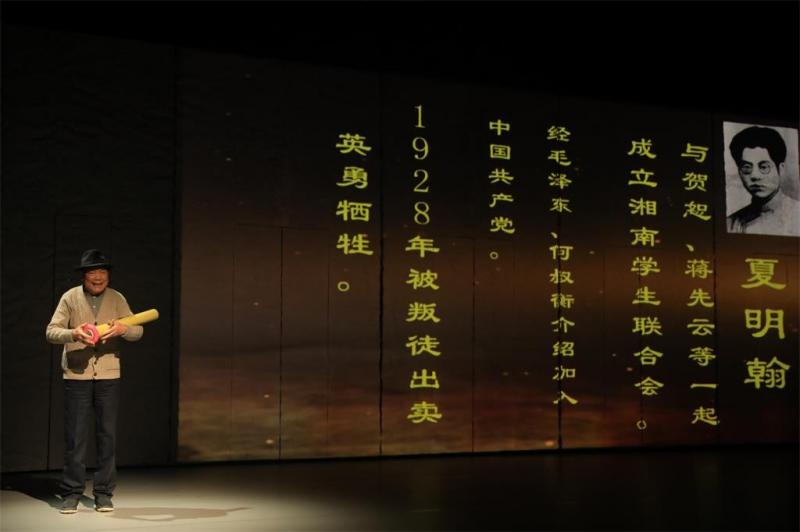 夏明翰
与贺恕、蒋先云等一起
成立湘南学生联合会。
经毛泽东、何叔衡介绍加入
中国共产党。
1928年被叛徒出卖
英勇牺牲。